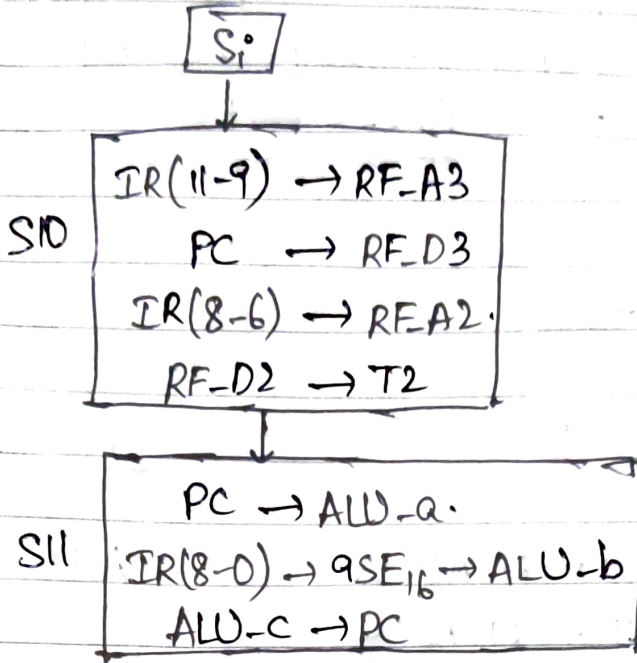 Si
S10
IR(11-9) → RF_A3
PC → RF_D3
IR(8-6) → RF_A2.
RF_D2 → T2
S11
PC → ALU_a.
IR(8-0) → 9SE16 → ALU_b
ALU_C → PC